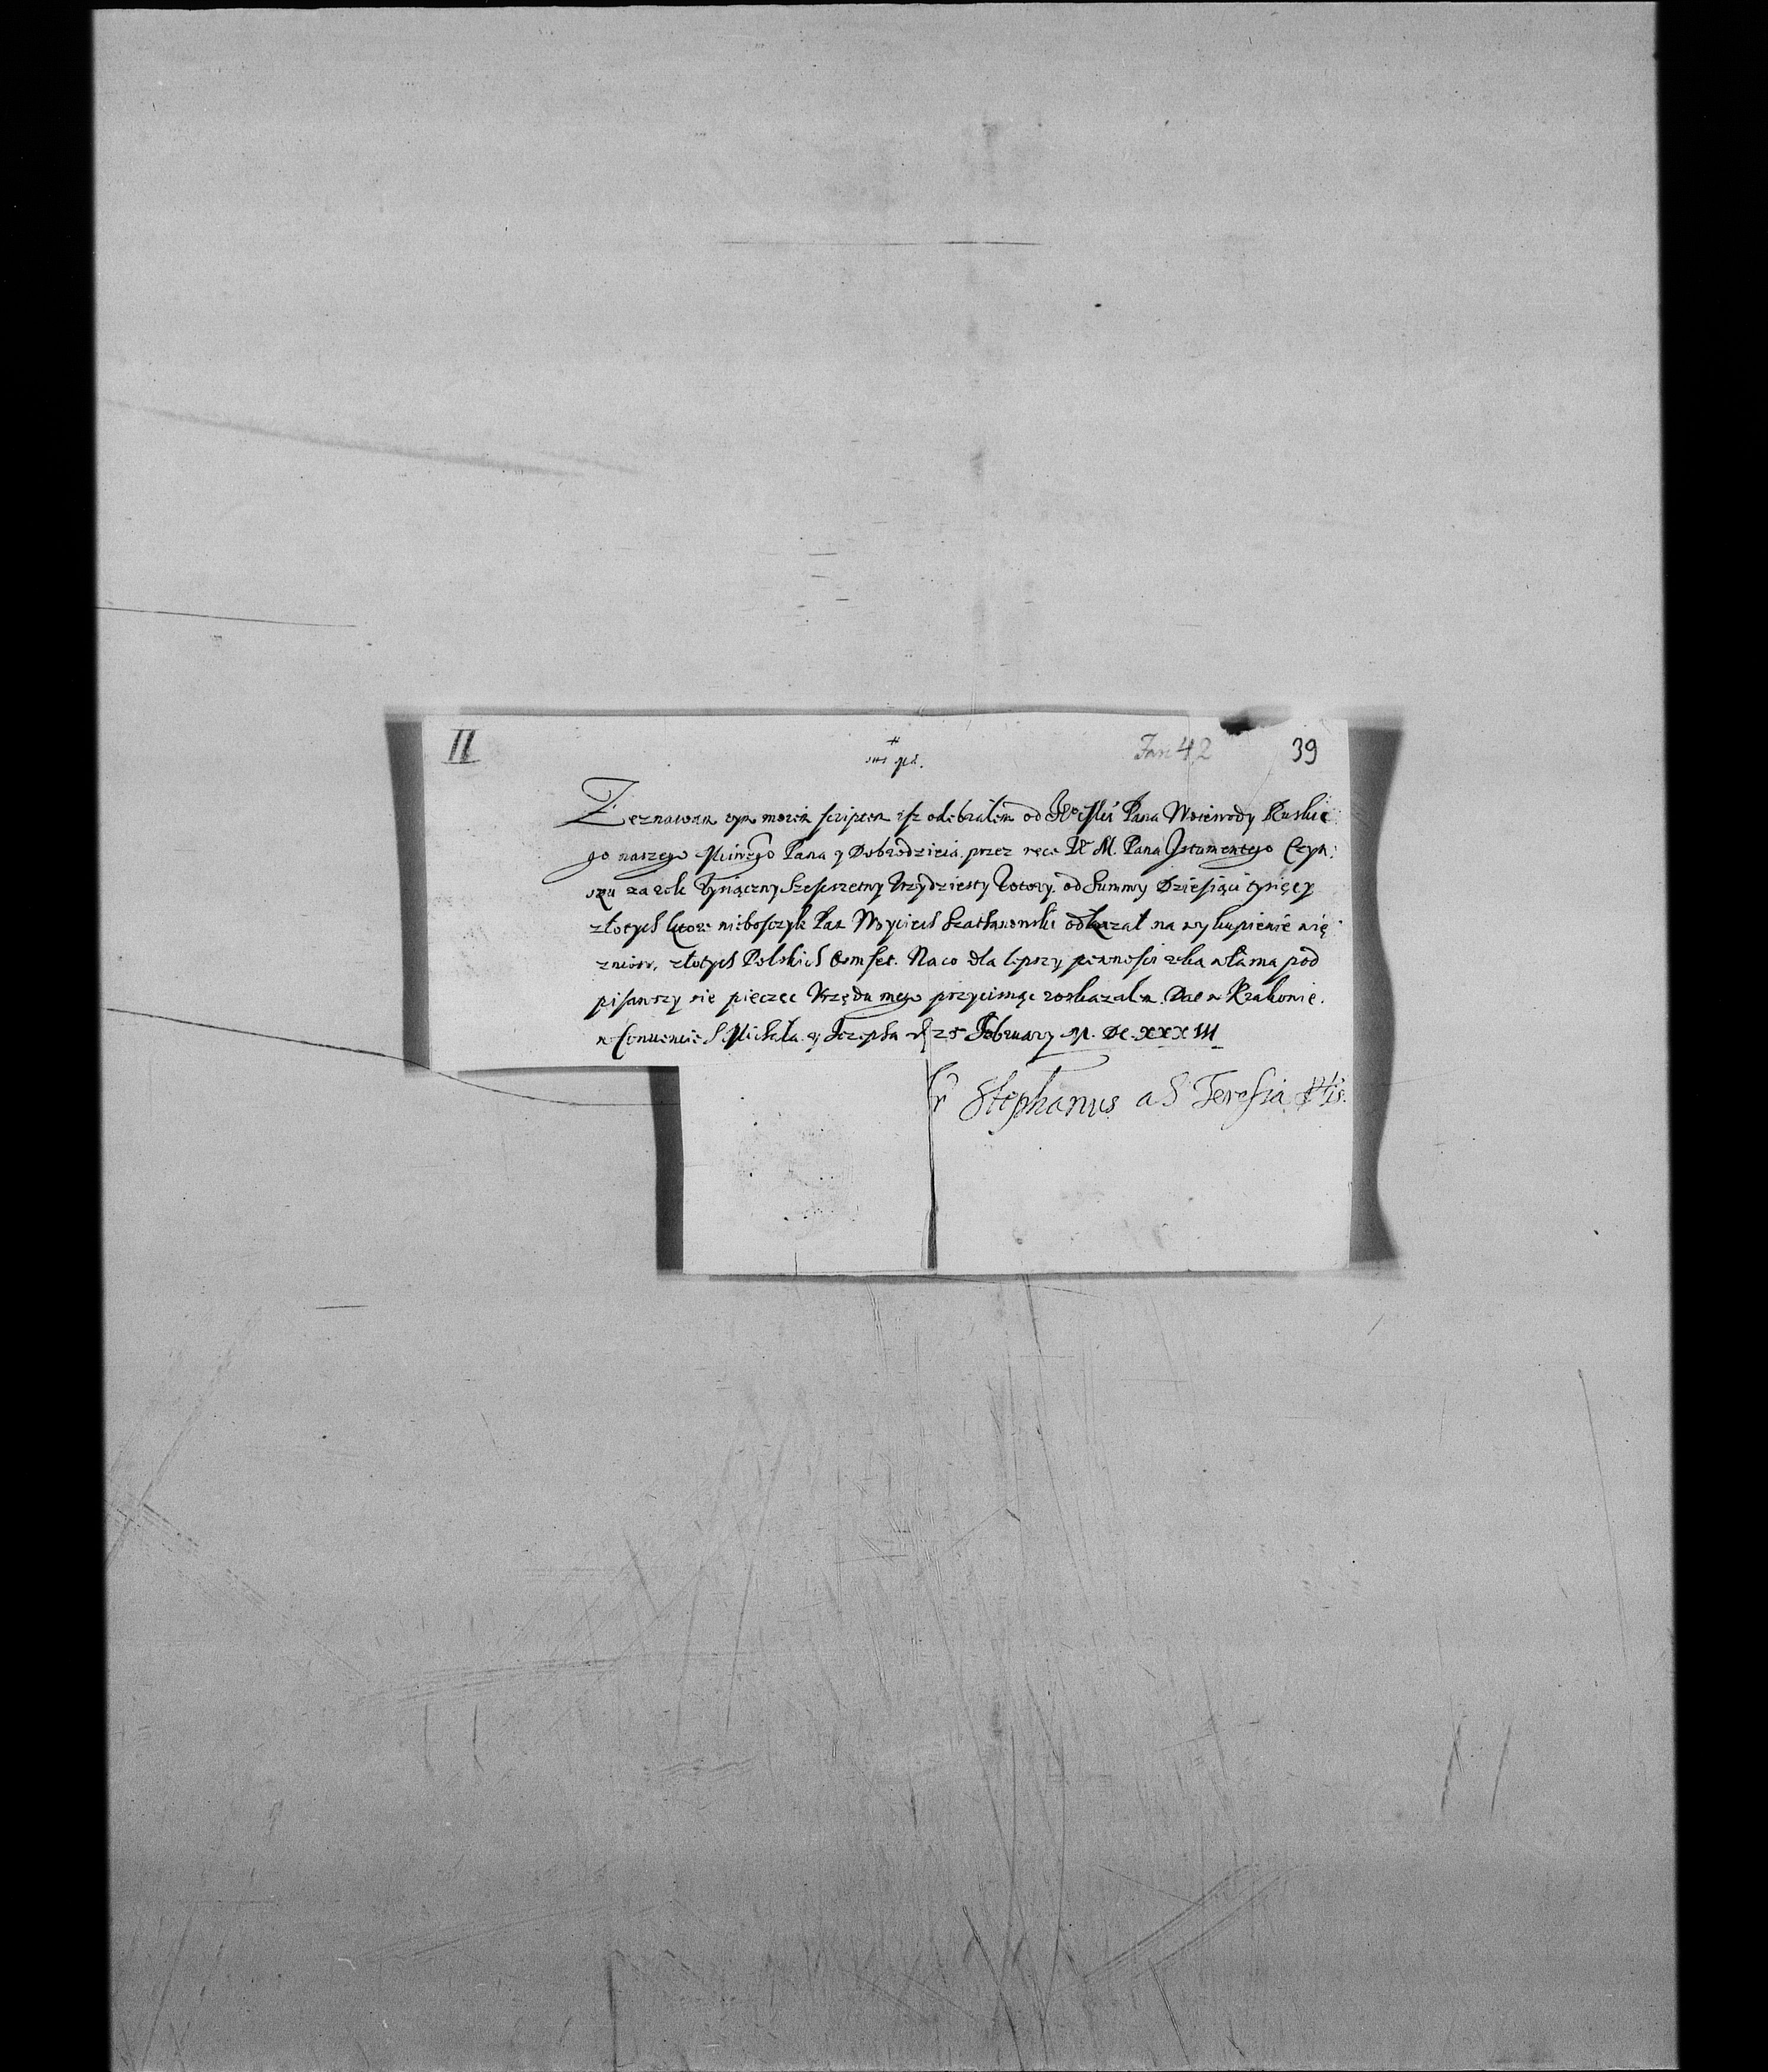 II
Jan 42
39
Zeznawam tym moiem scriptem isz odebrałem od Jeo Msci Pana Woiewody Ruskie
go naszego Mciwego Pana y Dobrodzieia przez rece IE M. Pana Czyn:
szu za rok Tysiączny Szesczsetny Trzydziesty od Summy Dziesiąci tysięcy
złotych ktore nieboszczyk Pan Woyciech odkazał na wykupienie wię
zniow, złotych Polskich Osmset. Na co dla lepszy pewnosci ręka własną pod
pisawszy sie pieczęc Vrzędu mego przycisnąc roskazałem. Dat w Krakowie.
w Conuencie S. Michała y Jozepha d 25 February M. DC. XXXIII
fr Stephanus a S Teresia